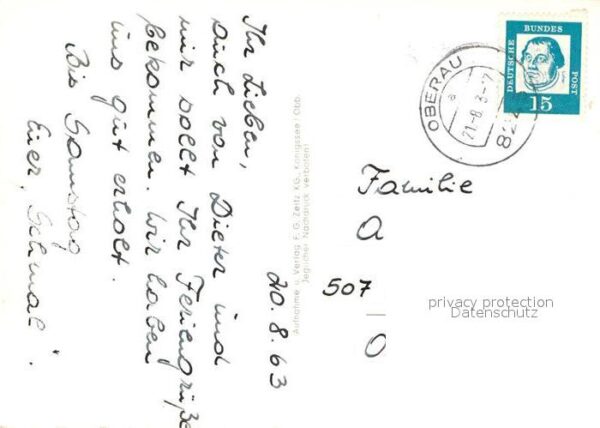 20.8.63
Ihr Lieben,
auch von Dieter und
mir sollt Ihr Feriengrüße
bekommen. Wir haben
uns gut erholt.
Bis Samstag
Euer „Schmal“.
Aufnahme u. Verlag E. G. Zeitz KG., Königssee / Obb.
Jeglicher Nachdruck verboten!
DEUTSCHE
BUNDES
POST
15
OBERAU
21-8.63-7
Familie
A
507
O
privacy protection
Datenschutz